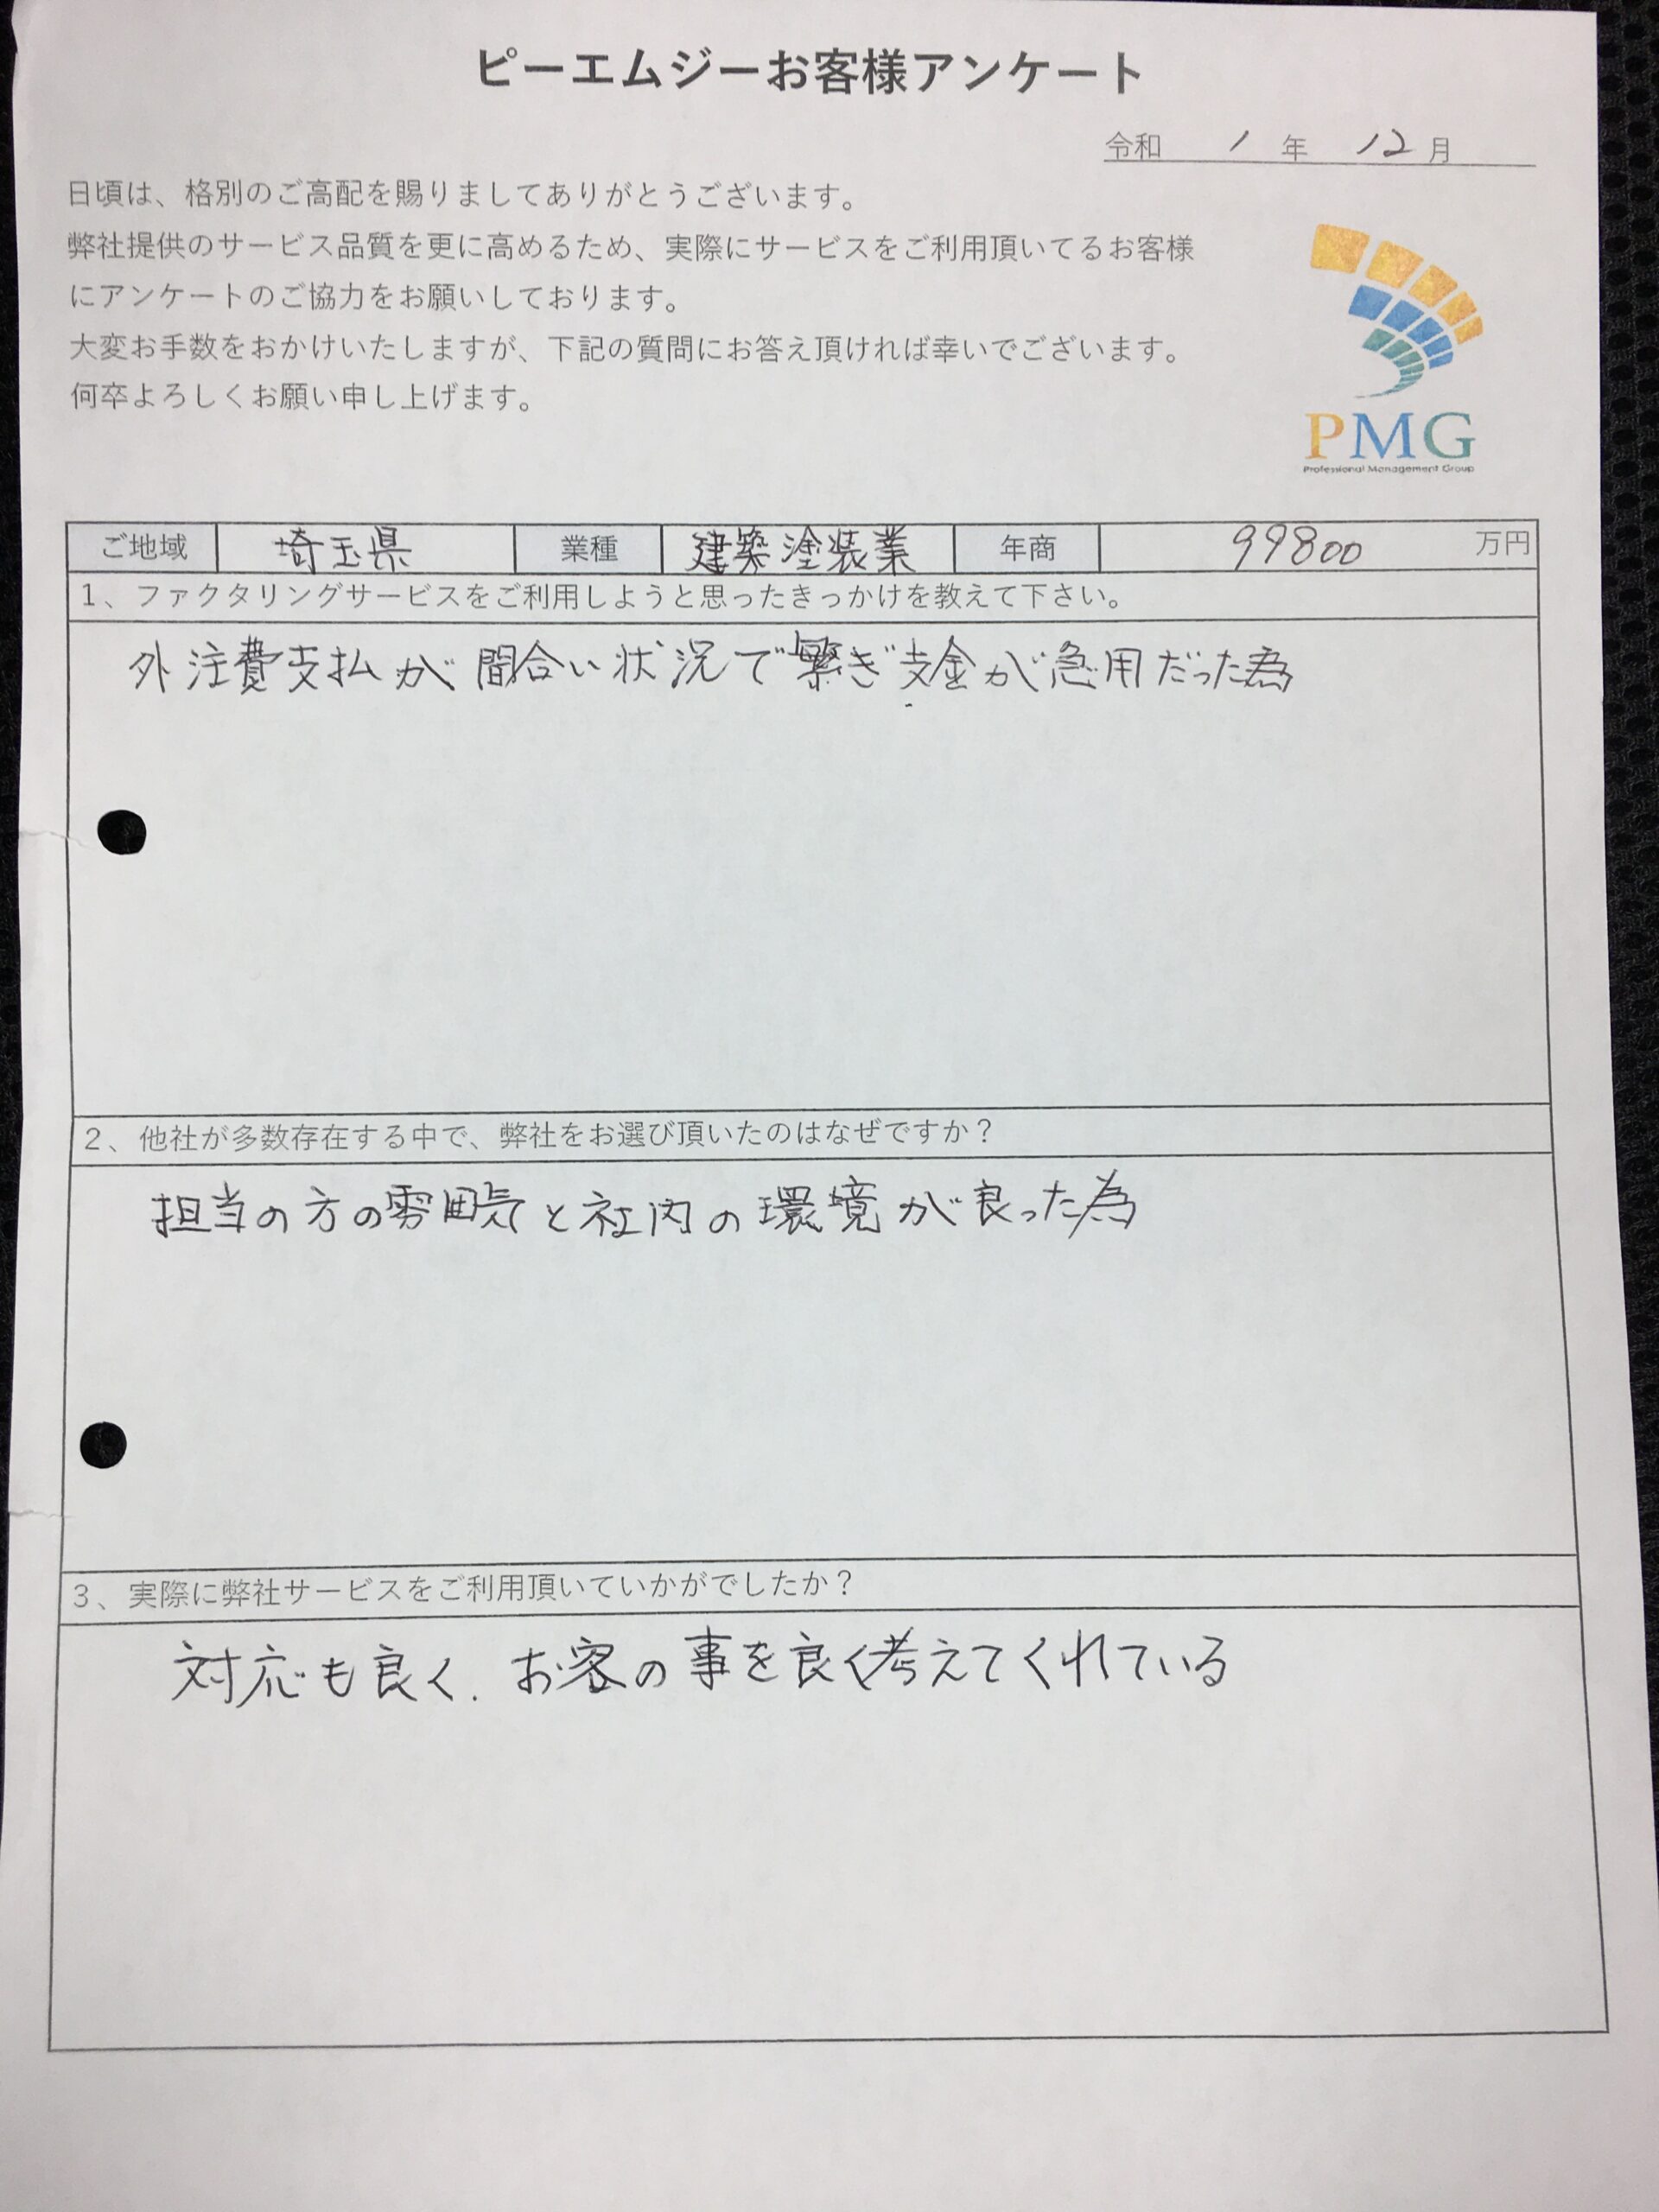 ピーエムジーお客様アンケート
令和 1 年 12 月
日頃は、格別のご高配を賜りましてありがとうございます。
弊社提供のサービス品質を更に高めるため、実際にサービスをご利用頂いてるお客様
にアンケートのご協力をお願いしております。
大変お手数をおかけいたしますが、下記の質問にお答え頂ければ幸いでございます。
何卒よろしくお願い申し上げます。
PMG
Professional Management Group
ご地域 埼玉県 業種 建築塗装業 年商 99800 万円
1、ファクタリングサービスをご利用しようと思ったきっかけを教えて下さい。
外注費支払が間合い状況で繋ぎ支金が急用だった為
2、他社が多数存在する中で、弊社をお選び頂いたのはなぜですか？
担当の方の雰囲気と社内の環境が良った為
3、実際に弊社サービスをご利用頂いていかがでしたか？
対応も良く、お客の事を良く考えてくれている